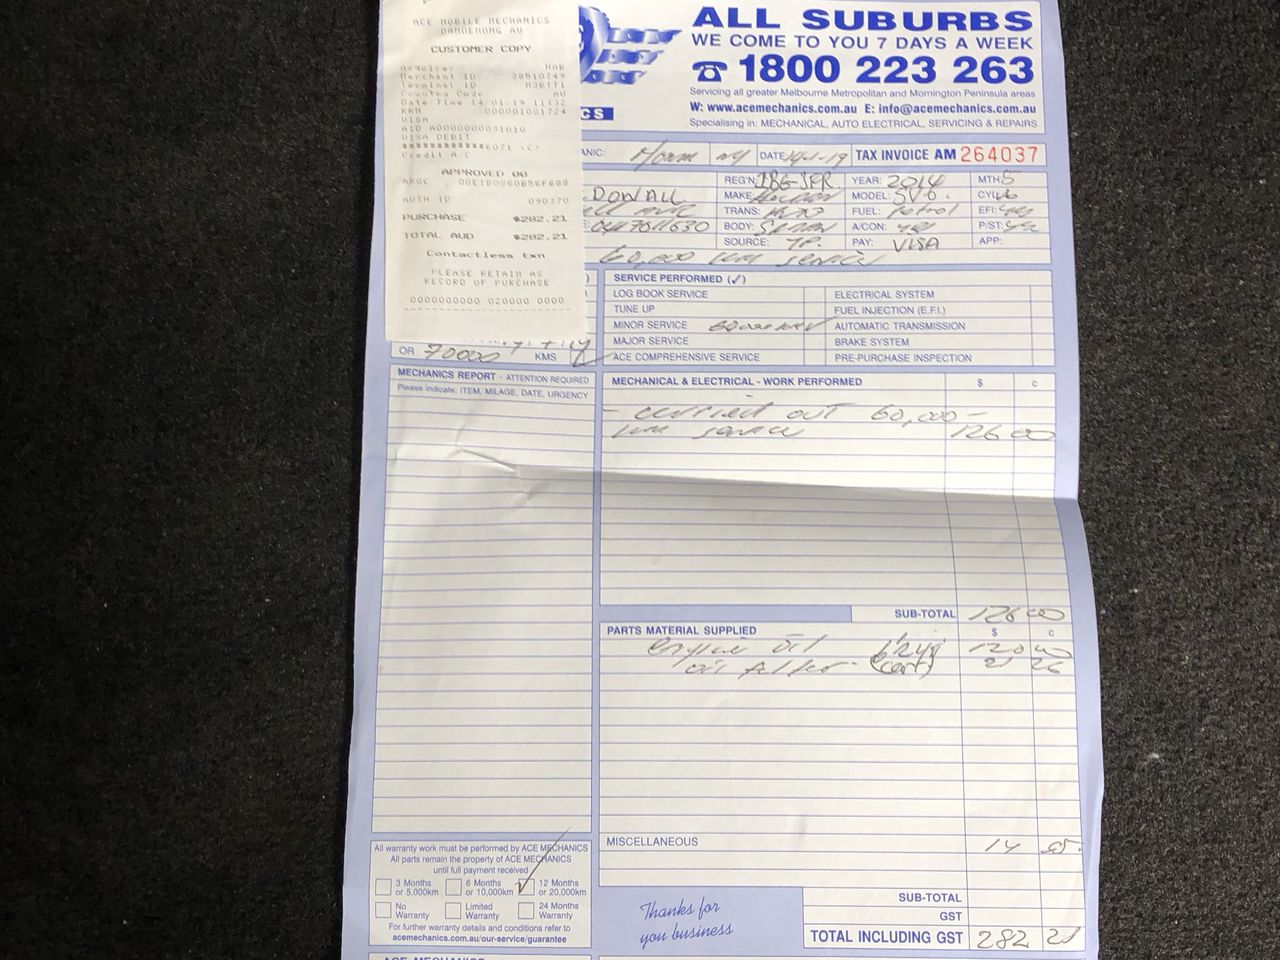 ACE MOBILE MECHANICS
DANDENONG AU
CUSTOMER COPY
Acquirer NAB
Merchant ID
Terminal ID
Country Code AU
Date Time 14-01-19 11:32
RRN 000001001724
VISA
AID A0000000031010
VISA DEBIT
6071 (C)
Credit A/C
APPROVED 00
ARQC
AUTH ID 090370
PURCHASE $282.21
TOTAL AUD $282.21
Contactless txn
PLEASE RETAIN AS
RECORD OF PURCHASE
0000000000 020000 0000
ALL SUBURBS
WE COME TO YOU 7 DAYS A WEEK
1800 223 263
Servicing all greater Melbourne Metropolitan and Mornington Peninsula areas
W: www.acemechanics.com.au E: info@acemechanics.com.au
Specialising in: MECHANICAL, AUTO ELECTRICAL, SERVICING & REPAIRS
CS
ANIC: DATE: TAX INVOICE AM 264037
REG'N: YEAR: 2014 MTH: 5
MAKE: Holden MODEL: SV6. CYL: 6
TRANS: FUEL: Petrol EFI: yes
BODY: Sedan A/CON: yes P/ST: yes
SOURCE: PAY: VISA APP:
60,000 km service
SERVICE PERFORMED (✓)
LOG BOOK SERVICE ELECTRICAL SYSTEM
TUNE UP FUEL INJECTION (E.F.I.)
MINOR SERVICE AUTOMATIC TRANSMISSION
MAJOR SERVICE BRAKE SYSTEM
ACE COMPREHENSIVE SERVICE PRE-PURCHASE INSPECTION
OR 70000 KMS
MECHANICS REPORT - ATTENTION REQUIRED
Please indicate: ITEM, MILAGE, DATE, URGENCY
MECHANICAL & ELECTRICAL - WORK PERFORMED $ c
- carried out 60,000 -
km service 126 00
SUB-TOTAL 126 00
PARTS MATERIAL SUPPLIED $ c
engine oil 120 00
oil filter 21 26
MISCELLANEOUS 14 95
All warranty work must be performed by ACE MECHANICS
All parts remain the property of ACE MECHANICS
until full payment received
3 Months or 5,000km
6 Months or 10,000km
12 Months or 20,000km
No Warranty
Limited Warranty
24 Months Warranty
For further warranty details and conditions refer to
acemechanics.com.au/our-service/guarantee
Thanks for
you business
SUB-TOTAL
GST
TOTAL INCLUDING GST 282 21
ACE MECHANICS